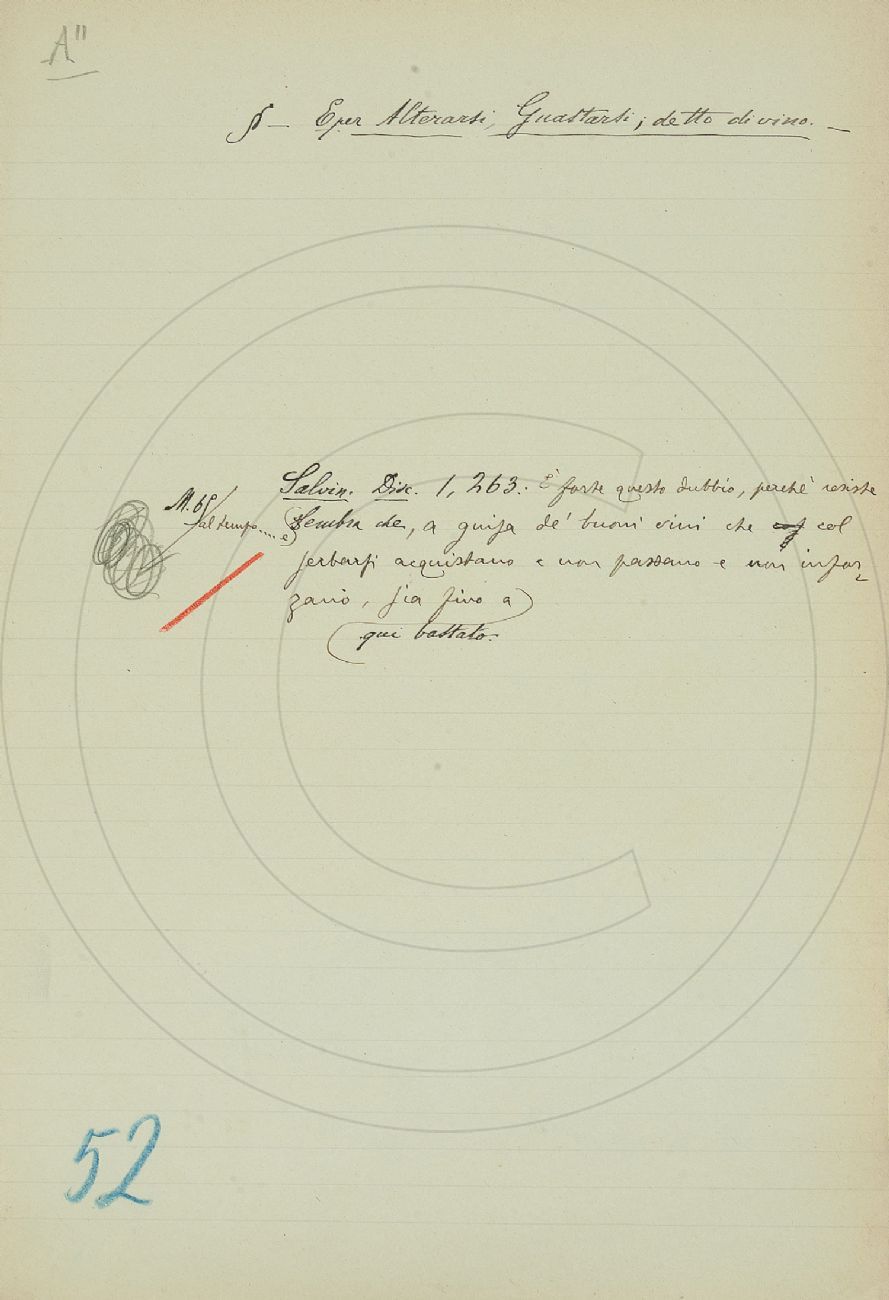 A"
§ — E per Alterarsi, Guastarsi; detto di vino. —
Salvin. Disc. 1, 263.: È forte questo dubbio, perchè resiste
M. 61
al tempo..... e
sembra che, a guisa de' buoni vini che col
serbarsi acquistano e non passano e non infor-
zano, sia fino a
qui bastato.
52